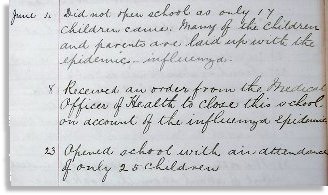 June 5. Did not open school as only 17
children came. Many of the children
and parents are laid up with the
epidemic - influenza.
8 Received an order from the Medical
Officer of Health to close this school
on account of the influenza epidemic
23 Opened school with an attendance
of only 25 children